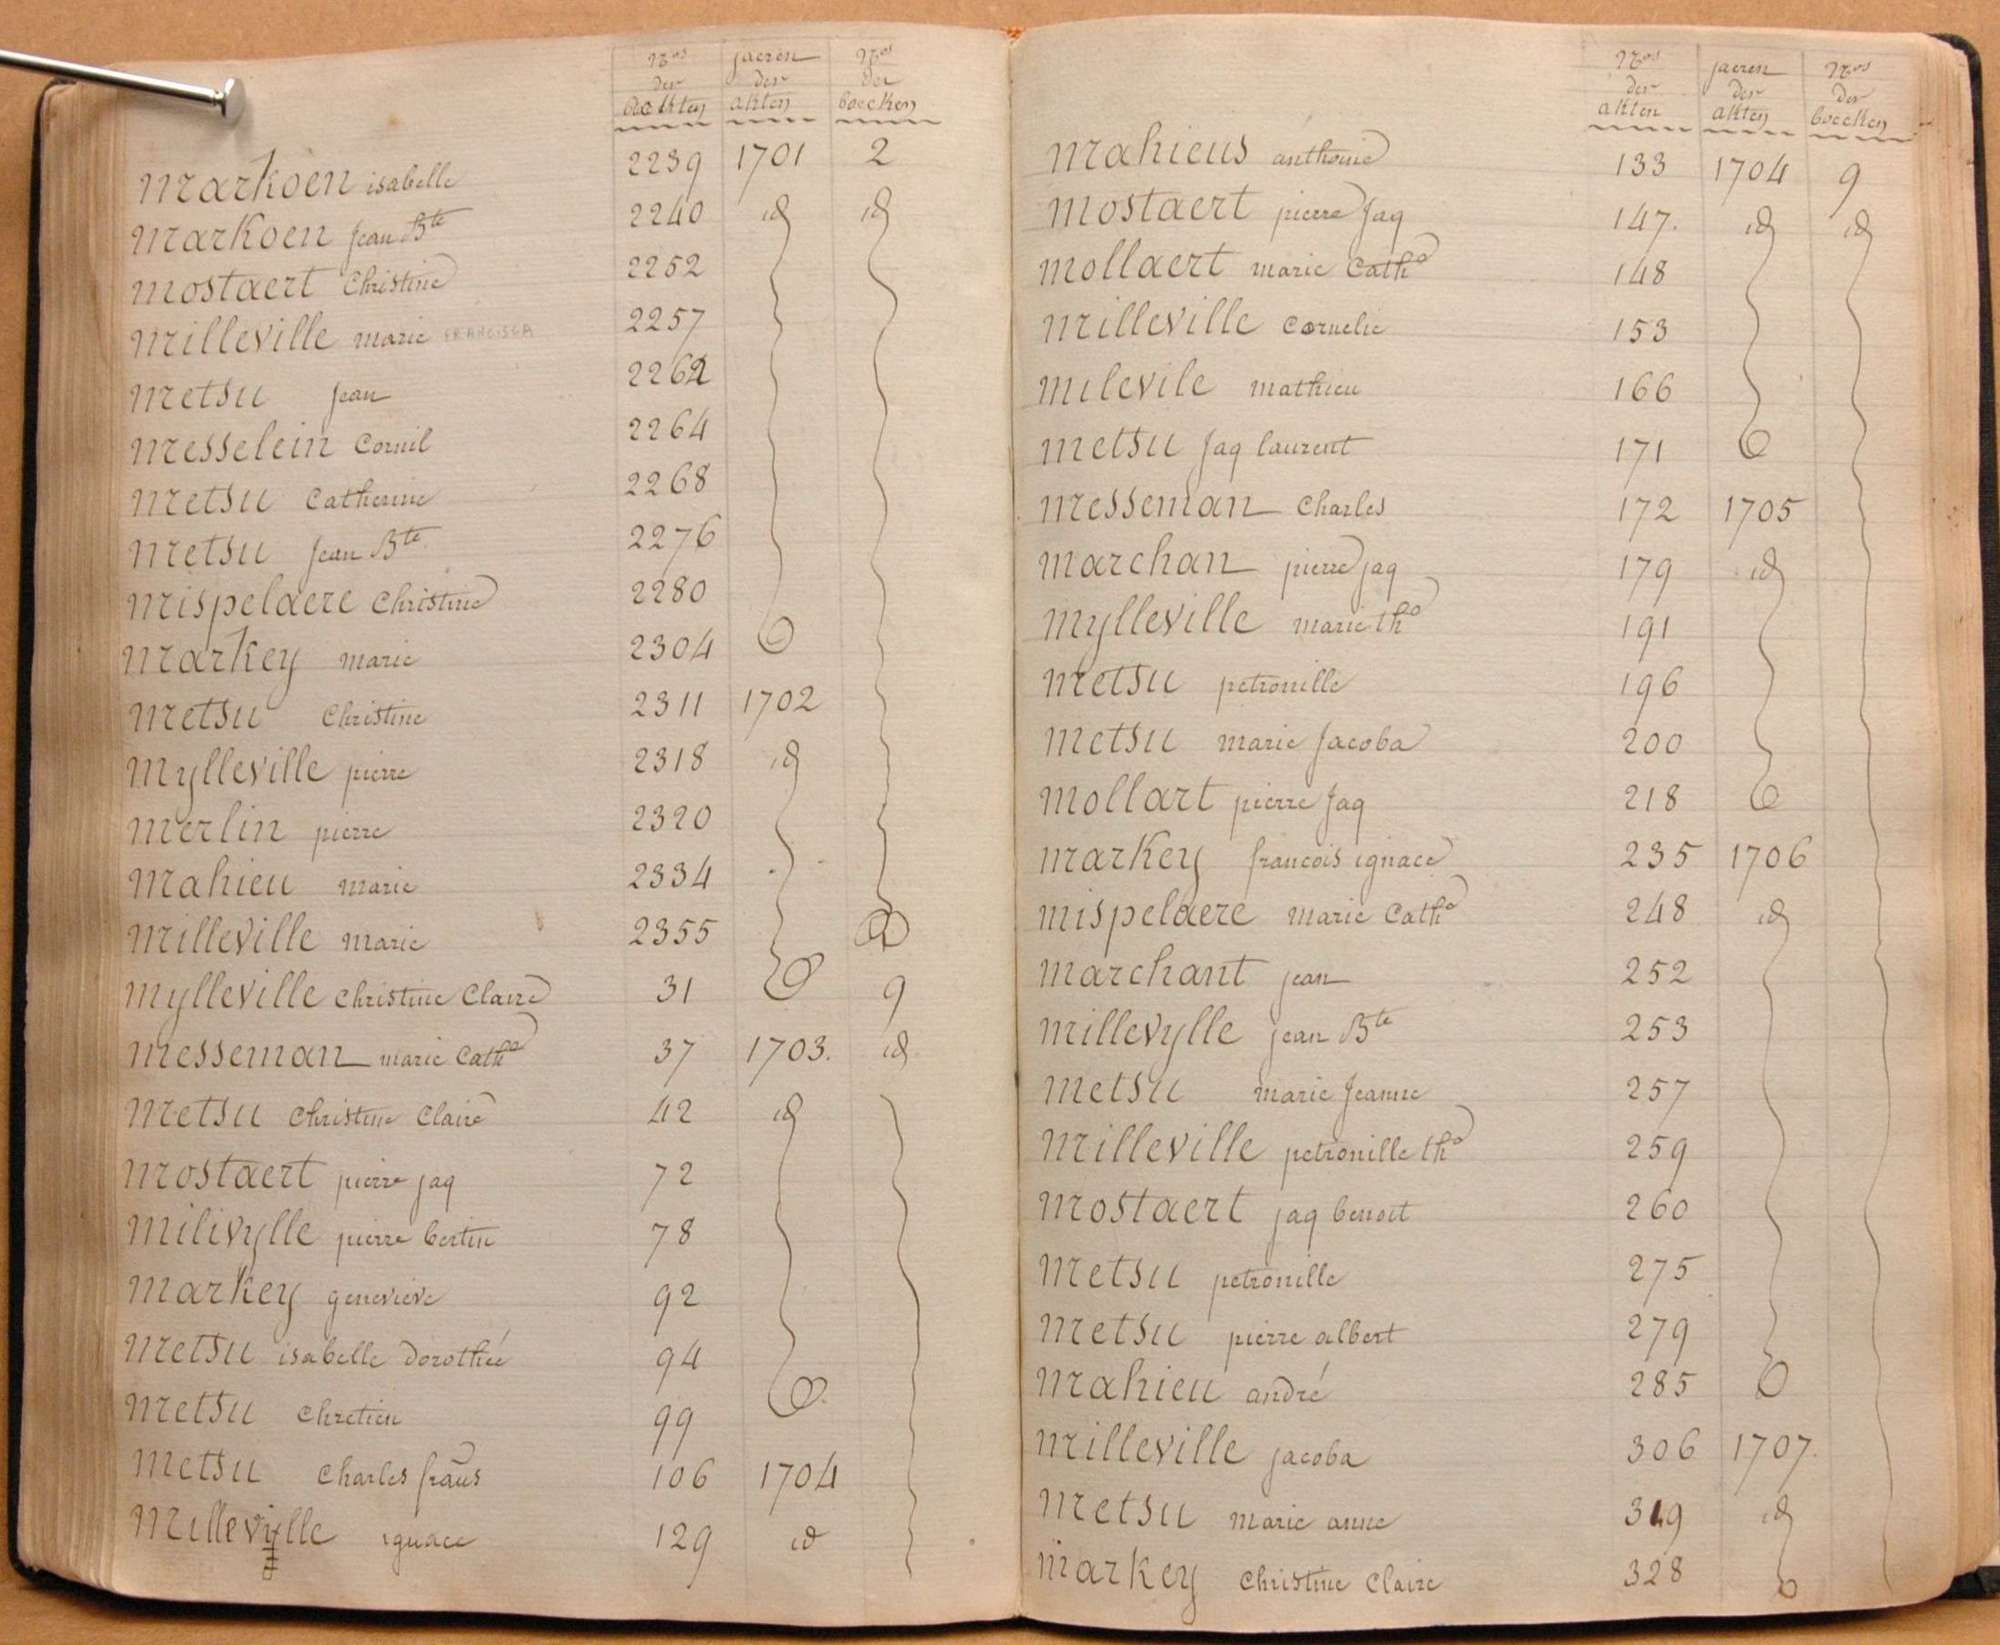 Nros jaeren Nros
der der der
akten akten boecken
Markoen isabelle 2239 1701 2
Markoen Jean Bte 2240 id id
Mostaert Christine 2252
Milleville marie FRANCISCA 2257
Metsu Jean 2262
Messelein Cornil 2264
Metsu Catherine 2268
Metsu Jean Bte 2276
Mispelaere Christine 2280
Markey marie 2304
Metsu Christine 2311 1702
Mylleville pierre 2318 id
Merlin pierre 2320
Mahieu marie 2334
Milleville marie 2355
Mylleville Christine Claire 31 9
Messeman marie Cathe 37 1703. id
Metsu Christine Claire 42 id
Mostaert pierre jaq 72
Milivylle pierre bertin 78
Markey geneviève 92
Metsu isabelle Dorothée 94
Metsu Chretien 99
Metsu Charles fraus 106 1704
Millevylle ignace 129 id
Nros jaeren Nros
der der der
akten akten boecken
Mahieus anthonie 133 1704 9
Mostaert pierre Jaq 147. id id
Mollaert marie Cathe 148
Milleville Cornelie 153
Milevile mathieu 166
Metsu Jaq laurent 171
Messeman Charles 172 1705
Marchan pierre jaq 179 id
Mylleville marie the 191
Metsu petronille 196
Metsu marie Jacoba 200
Mollart pierre Jaq 218
Markey francois ignace 235 1706
Mispelaere marie Cathe 248 id
Marchant jean 252
Millevylle jean Bte 253
Metsu marie Jeanne 257
Milleville petronille the 259
Mostaert jaq benoit 260
Metsu petronille 275
Metsu pierre albert 279
Mahieu andré 285
Milleville jacoba 306 1707.
Metsu marie anne 319 id
Markey Christine Claire 328